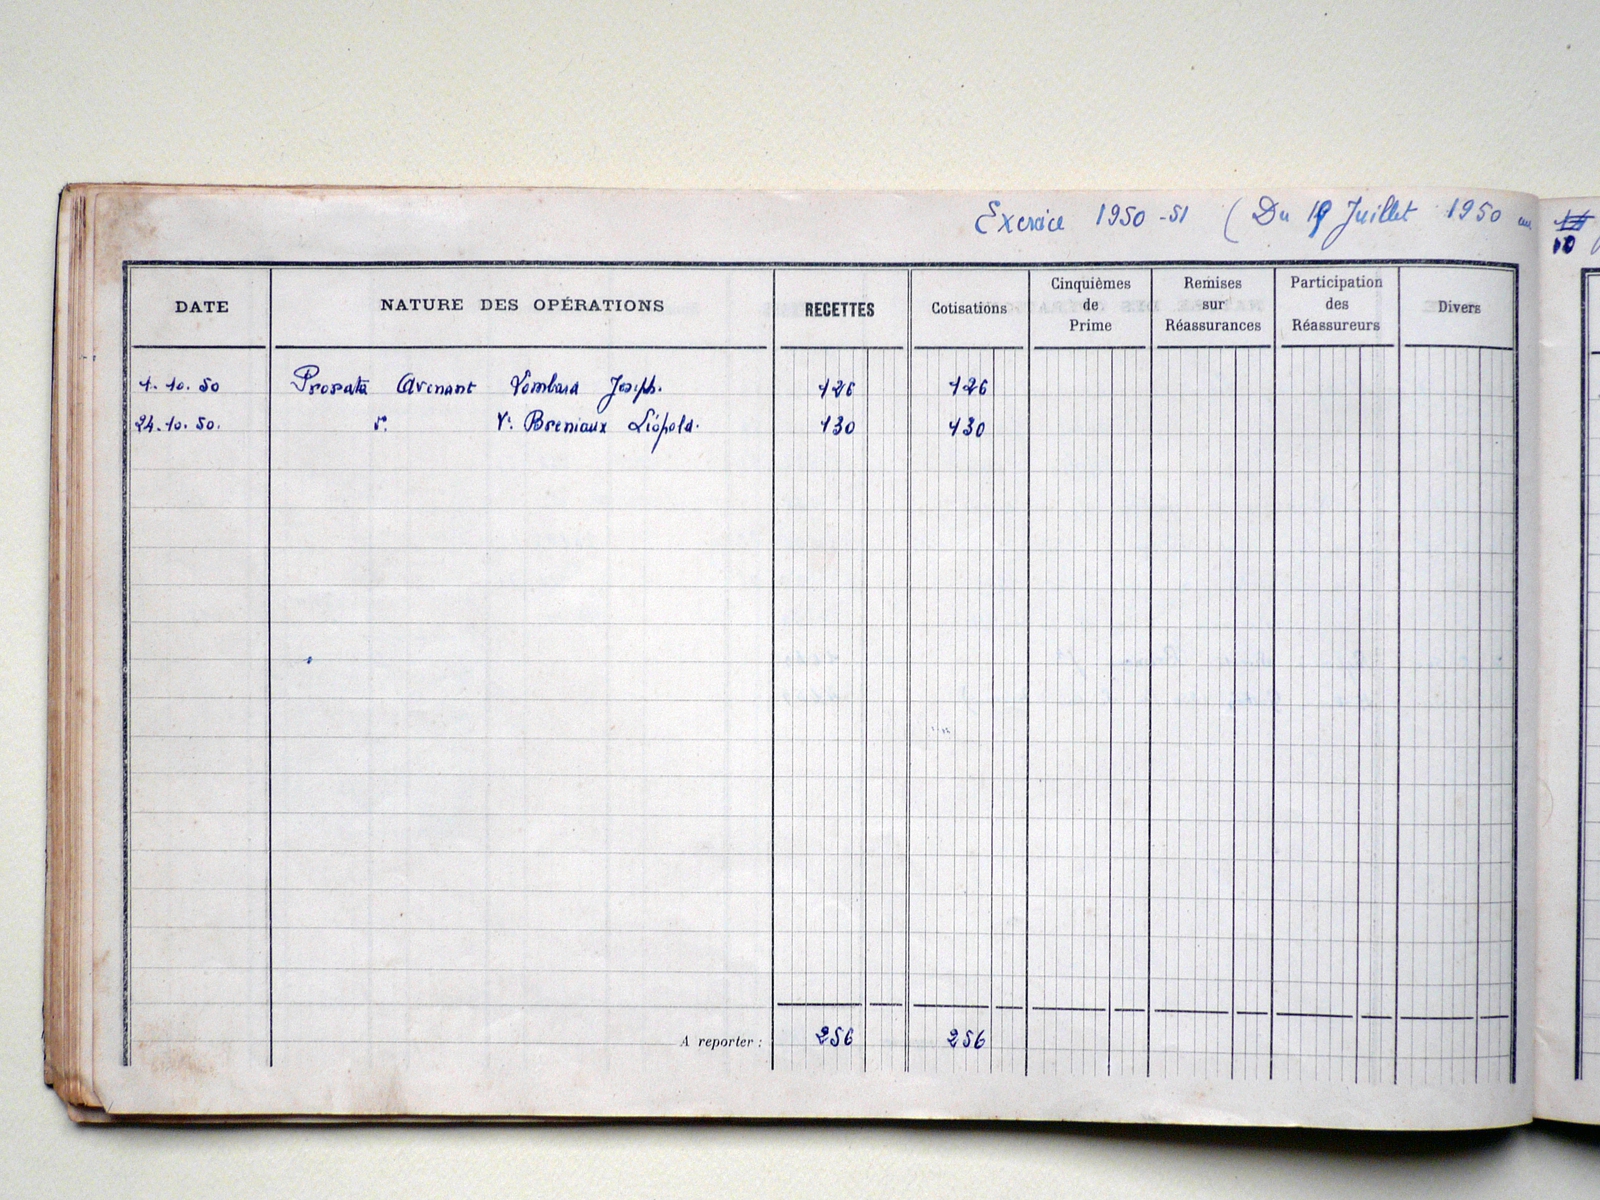 Exercice 1950-51 (Du 19 Juillet 1950 au
10
DATE
NATURE DES OPÉRATIONS
RECETTES
Cotisations
Cinquièmes
de
Prime
Remises
sur
Réassurances
Participation
des
Réassureurs
Divers
1.10.50 Prorata Avenant Lombard Joseph. 126 126
24.10.50. Breniaux Léopold. 130 130
A reporter : 256 256